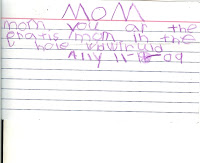 MOM
mom you ar the
gratis mom in the
hole
Ally 11 09